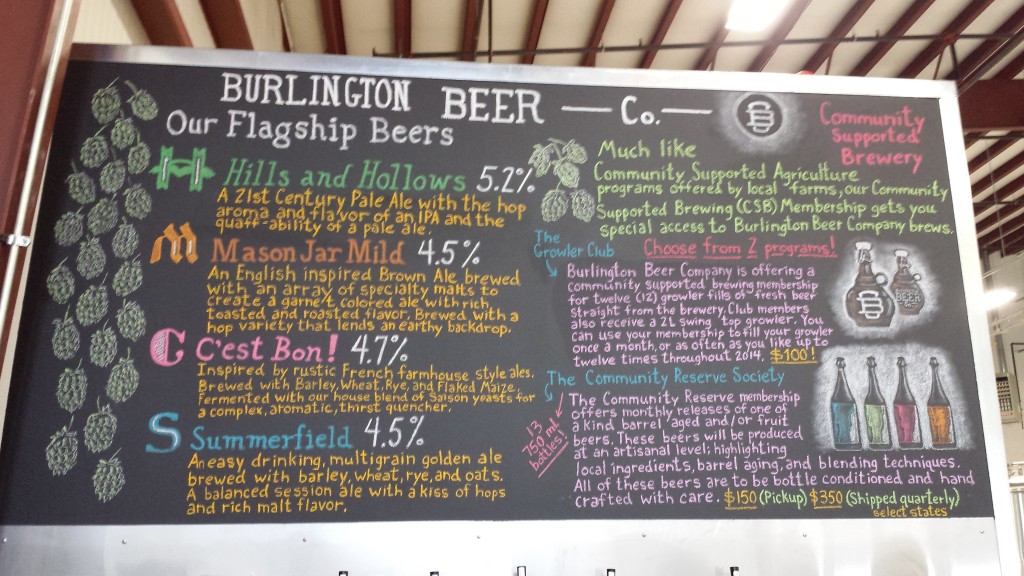 BURLINGTON BEER — Co. —
Our Flagship Beers
H Hills and Hollows 5.2%
A 21st Century Pale Ale with the hop
aroma and flavor of an IPA and the
quaff-ability of a pale ale.
M Mason Jar Mild 4.5%
An English inspired Brown Ale brewed
with an array of specialty malts to
create a garnet colored ale with rich,
toasted and roasted flavor. Brewed with a
hop variety that lends an earthy backdrop.
C C'est Bon! 4.7%
Inspired by rustic French farmhouse style ales.
Brewed with Barley, Wheat, Rye, and Flaked Maize.
Fermented with our house blend of Saison yeasts for
a complex, aromatic, thirst quencher.
S Summerfield 4.5%
An easy drinking, multigrain golden ale
brewed with barley, wheat, rye, and oats.
A balanced session ale with a kiss of hops
and rich malt flavor.
B
Community
Supported
Brewery
Much like
Community Supported Agriculture
programs offered by local farms, our Community
Supported Brewing (CSB) Membership gets you
special access to Burlington Beer Company brews.
Choose from 2 programs!
The
Growler Club
Burlington Beer Company is offering a
community supported brewing membership
for twelve (12) growler fills of fresh beer
straight from the brewery. Club members
also receive a 2L swing top growler. You
can use your membership to fill your growler
once a month, or as often as you like up to
twelve times throughout 2014. $100!
B
BEER
The Community Reserve Society
The Community Reserve membership
offers monthly releases of one of
a kind barrel aged and/or fruit
beers. These beers will be produced
at an artisanal level; highlighting
local ingredients, barrel aging, and blending techniques.
All of these beers are to be bottle conditioned and hand
crafted with care. $150 (Pickup) $350 (Shipped quarterly)
select states
13
750 ml
bottles!